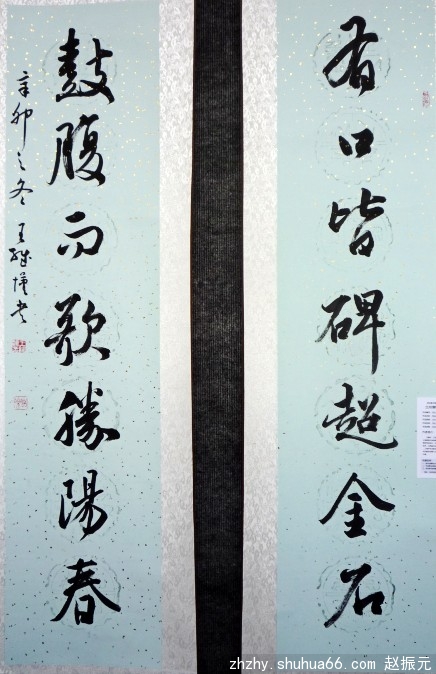 有口皆碑超金石
鼓腹而歌勝陽春
辛卯之冬
zhzhy.shuhua66.com 赵振元